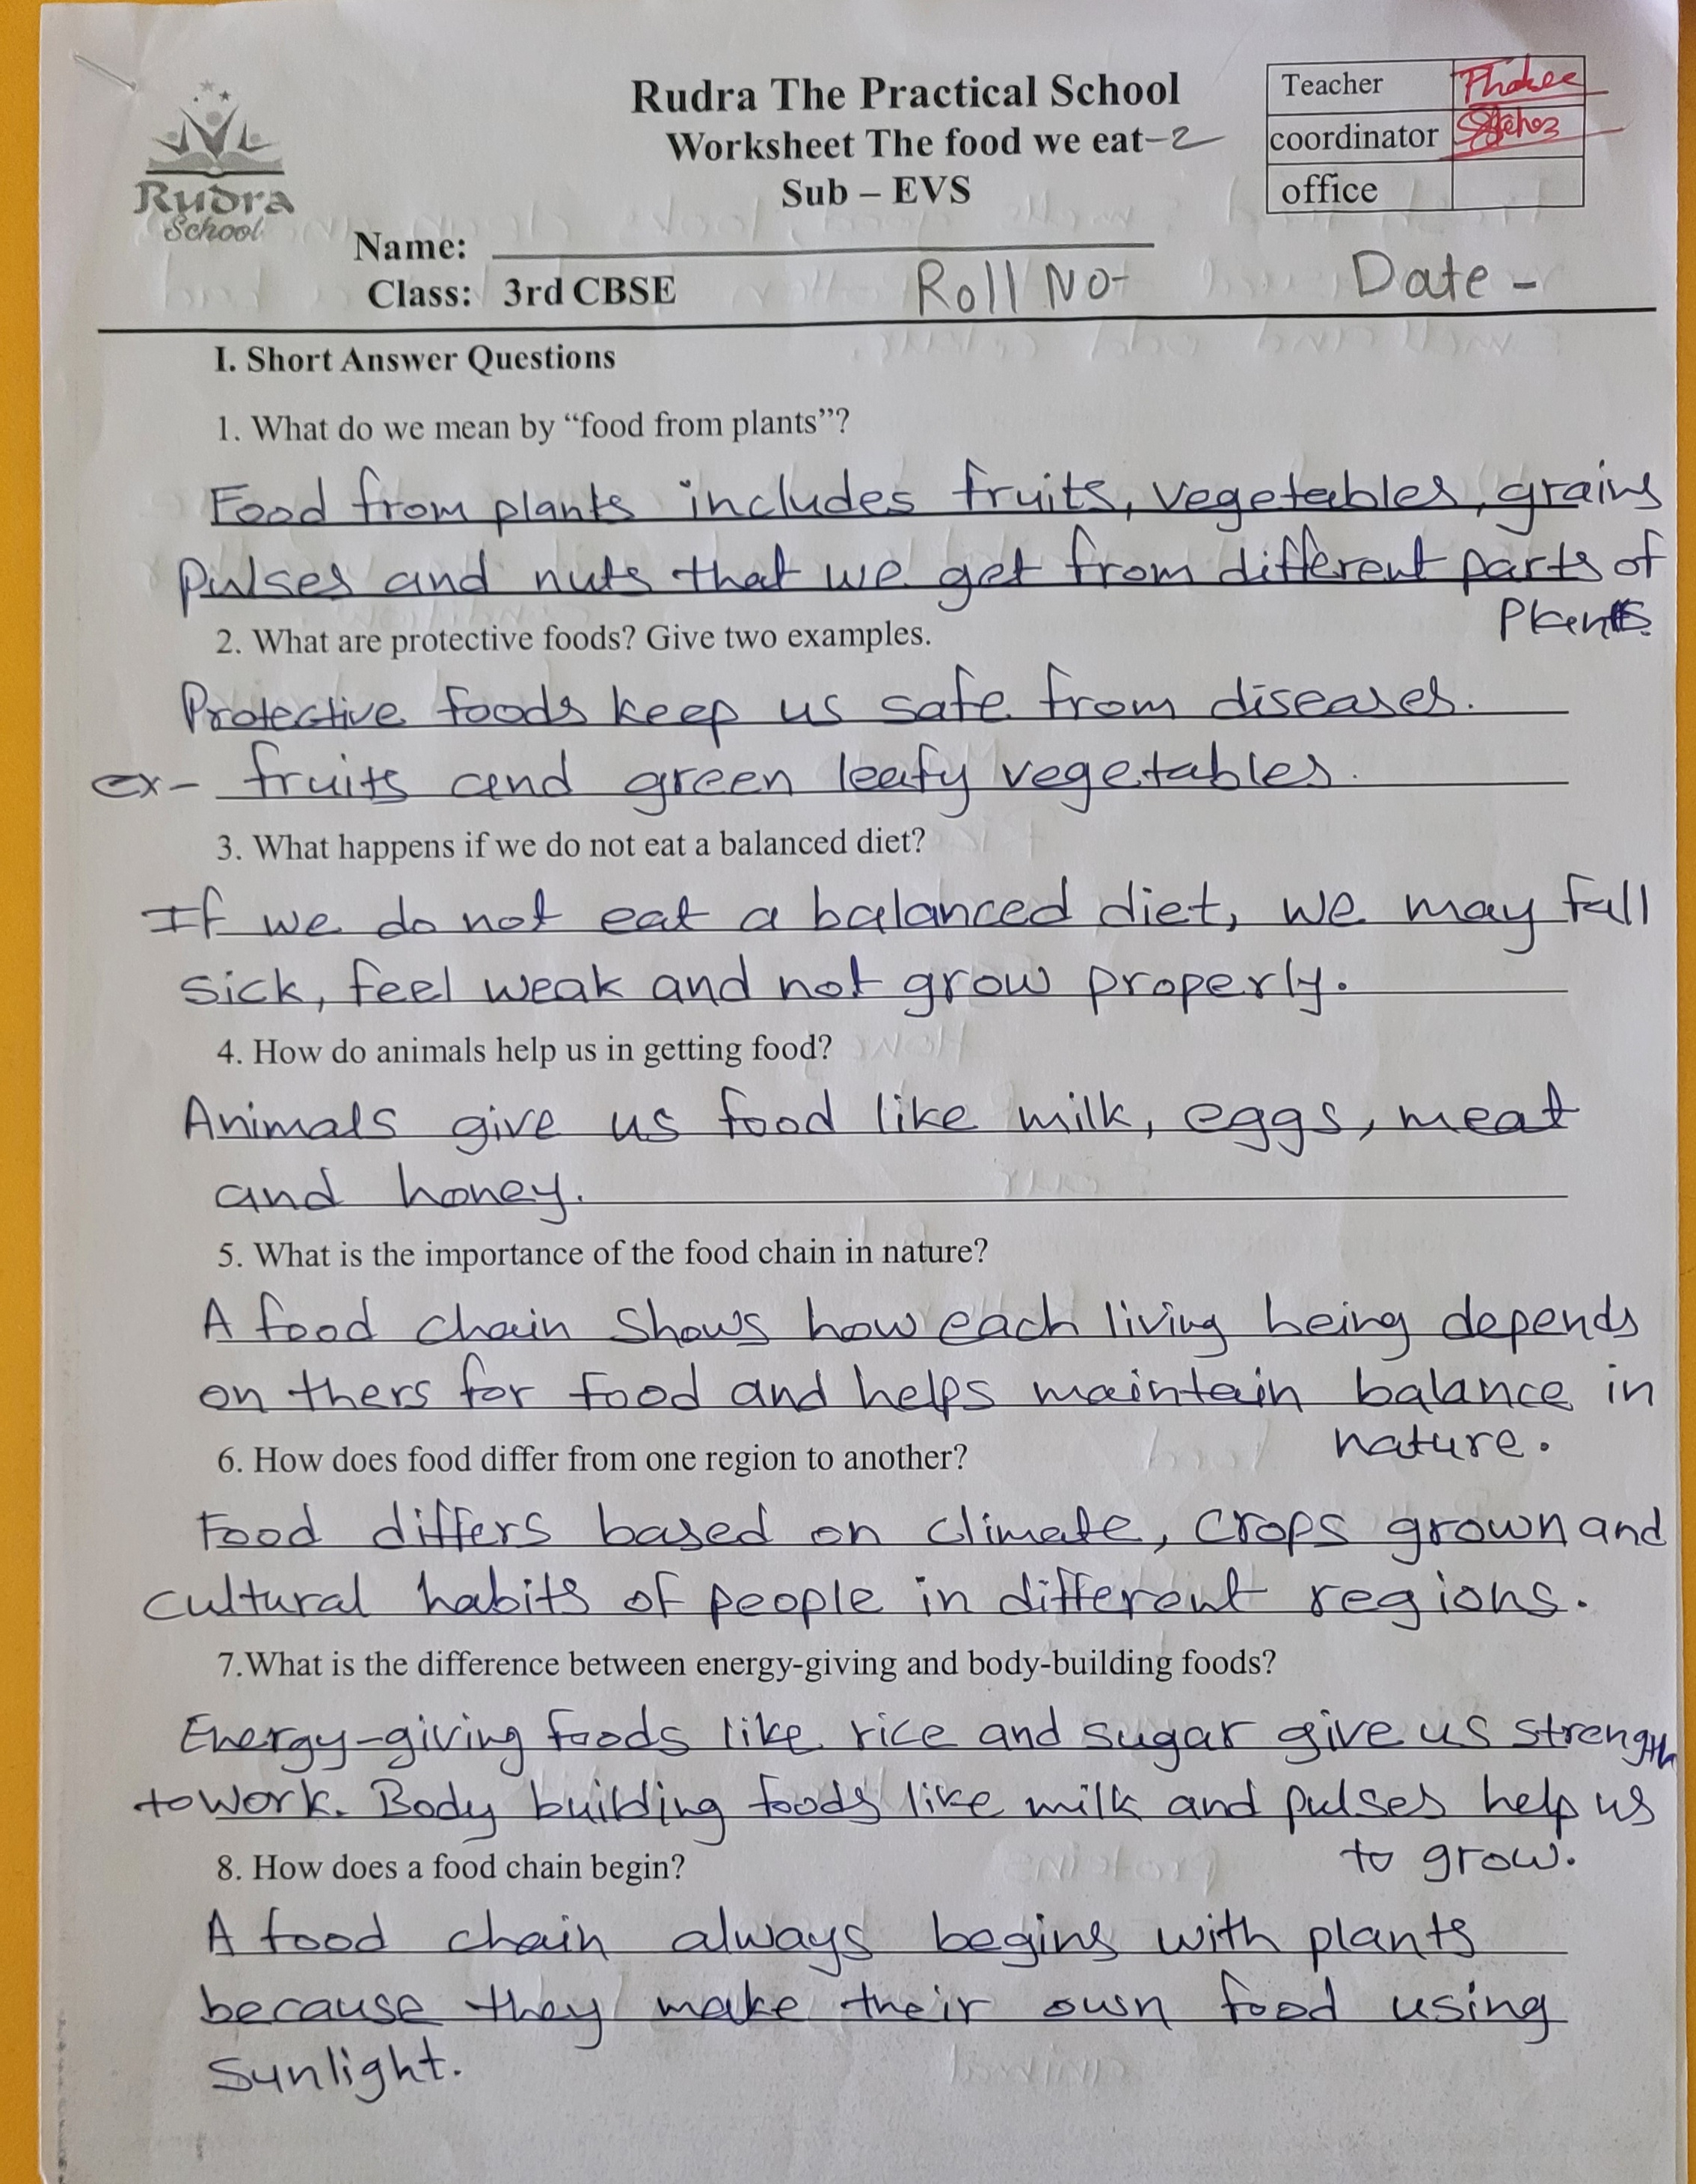 Rudra The Practical School
Worksheet The food we eat-2
Sub – EVS
Teacher
coordinator
office
Rudra
School
Name:
Class: 3rd CBSE Roll No- Date -
I. Short Answer Questions
1. What do we mean by “food from plants”?
Food from plants includes fruits, vegetables, grains
Pulses and nuts that we get from different parts of
Plants.
2. What are protective foods? Give two examples.
Protective foods keep us safe from diseases.
ex- fruits and green leafy vegetables.
3. What happens if we do not eat a balanced diet?
If we do not eat a balanced diet, we may fall
sick, feel weak and not grow properly.
4. How do animals help us in getting food?
Animals give us food like milk, eggs, meat
and honey.
5. What is the importance of the food chain in nature?
A food chain shows how each living being depends
on thers for food and helps maintain balance in
nature.
6. How does food differ from one region to another?
Food differs based on climate, crops grown and
cultural habits of people in different regions.
7.What is the difference between energy-giving and body-building foods?
Energy-giving foods like rice and sugar give us strength
to work. Body building foods like milk and pulses help us
to grow.
8. How does a food chain begin?
A food chain always begins with plants
because they make their own food using
Sunlight.